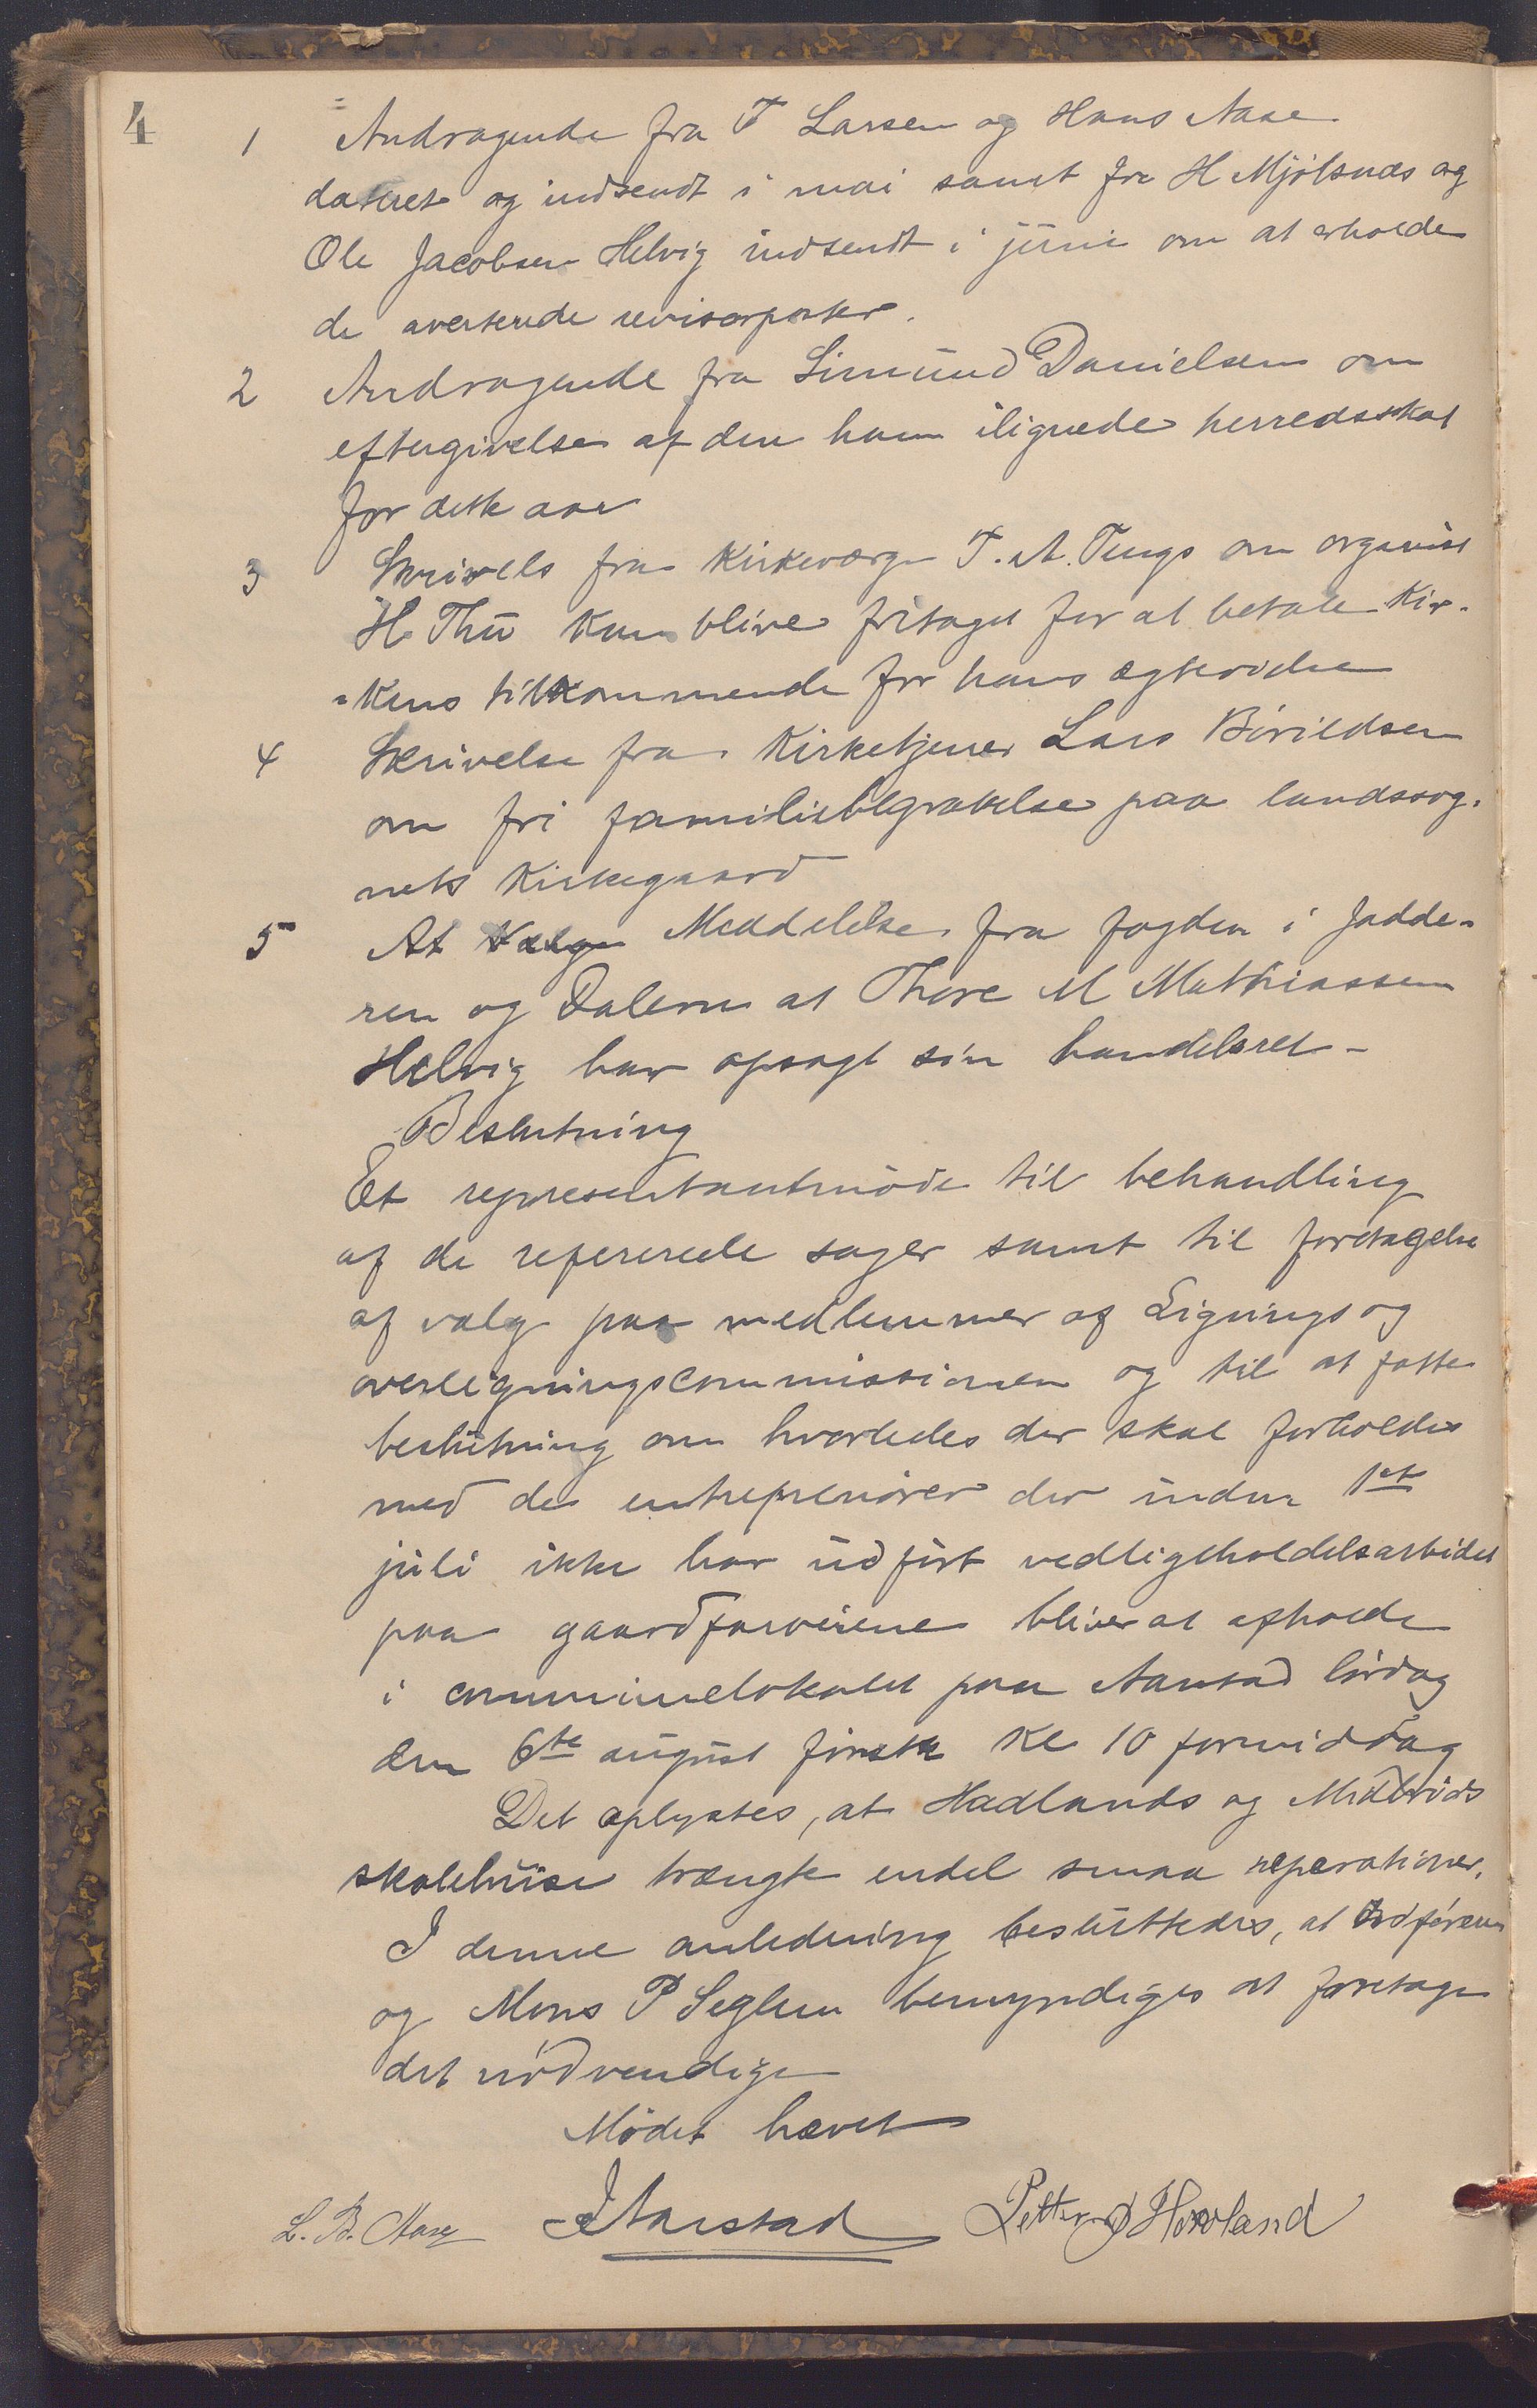 4
1 Andragende fra T Larsen og Hans Aase
dateret og indsendt i mai samt fra H Mjölsnæs og
Ole Jacobsen Helvig indsendt i juni om at erholde
de averterede revisorposter.
2 Andragende fra Simund Danielsen om
eftergivelse af den ham ilignede herredsskat
for dette aar
3 Skrivels fra Kirkeværge T. A. Tengs om organist
H. Thu kan blive fritaget for at betale Kir-
-kens tilkommende for hans ægtevielse
4 Skrivelse fra Kirketjener Lars Börildsen
om fri familiebegravelse paa landssog-
nets Kirkegaard
5 At Vælge Meddelelse fra fogden i Jædde-
ren og Dalerne at Thore M Mathiassen
Helvig har opsagt sin handelsret -
Beslutning
Et representantmöde til behandling
af de refererede sager samt til foretagelse
af valg paa medlemmer af Lignings og
overligningscommissionen og til at fatte
beslutning om hvorledes der skal forholdes
med de entreprenörer der inden 1st
juli ikke har udfört vedligeholdelsarbeidet
paa gaardfarveiene bliver at afholde
i communelokalet paa Aarstad lördag
den 6te august förstk Kl 10 formiddag
Det oplystes, at Hadlands og Midbröds
skolehuse trængte endel smaa reparationer.
I denne anledning besluttedes, at Ordföreren
og Mons P Seglem bemyndiges at foretage
det nödvendige
Mödet hævet
L. B. Aase J Aarstad Petter J Hovland